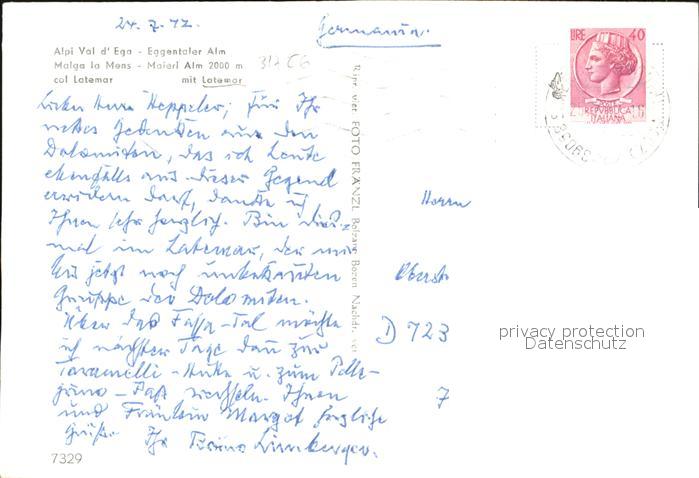 24.7.72.
Germania.
Alpi Val d'Ega - Eggentaler Alm
Malga la Mens - Maierl Alm 2000 m
col Latemar mit Latemar
317 CG
LIRE 40
REPVBBLICA
ITALIANA
Lieber Herr Heppeler; für Ihr
nettes Gedenken aus den
Dolomiten, das ich heute
ebenfalls aus dieser Gegend
erwidern darf, danke ich
Ihnen sehr herzlich. Bin dies-
mal im Latemar, der mir
bis jetzt noch unbekannten
Gruppe der Dolomiten.
Über das Fassa-Tal möchte
ich nächster Tage dann zur
Taramelli-Hütte u. zum Pelle-
grino-Paß wechseln. Ihnen
und Fräulein Margot herzliche
Grüße. Ihr Bruno
Ripr. viet. FOTO FRÄNZL Bolzano Bozen Nachdr. ver
Herrn
D 723
7
privacy protection
Datenschutz
7329